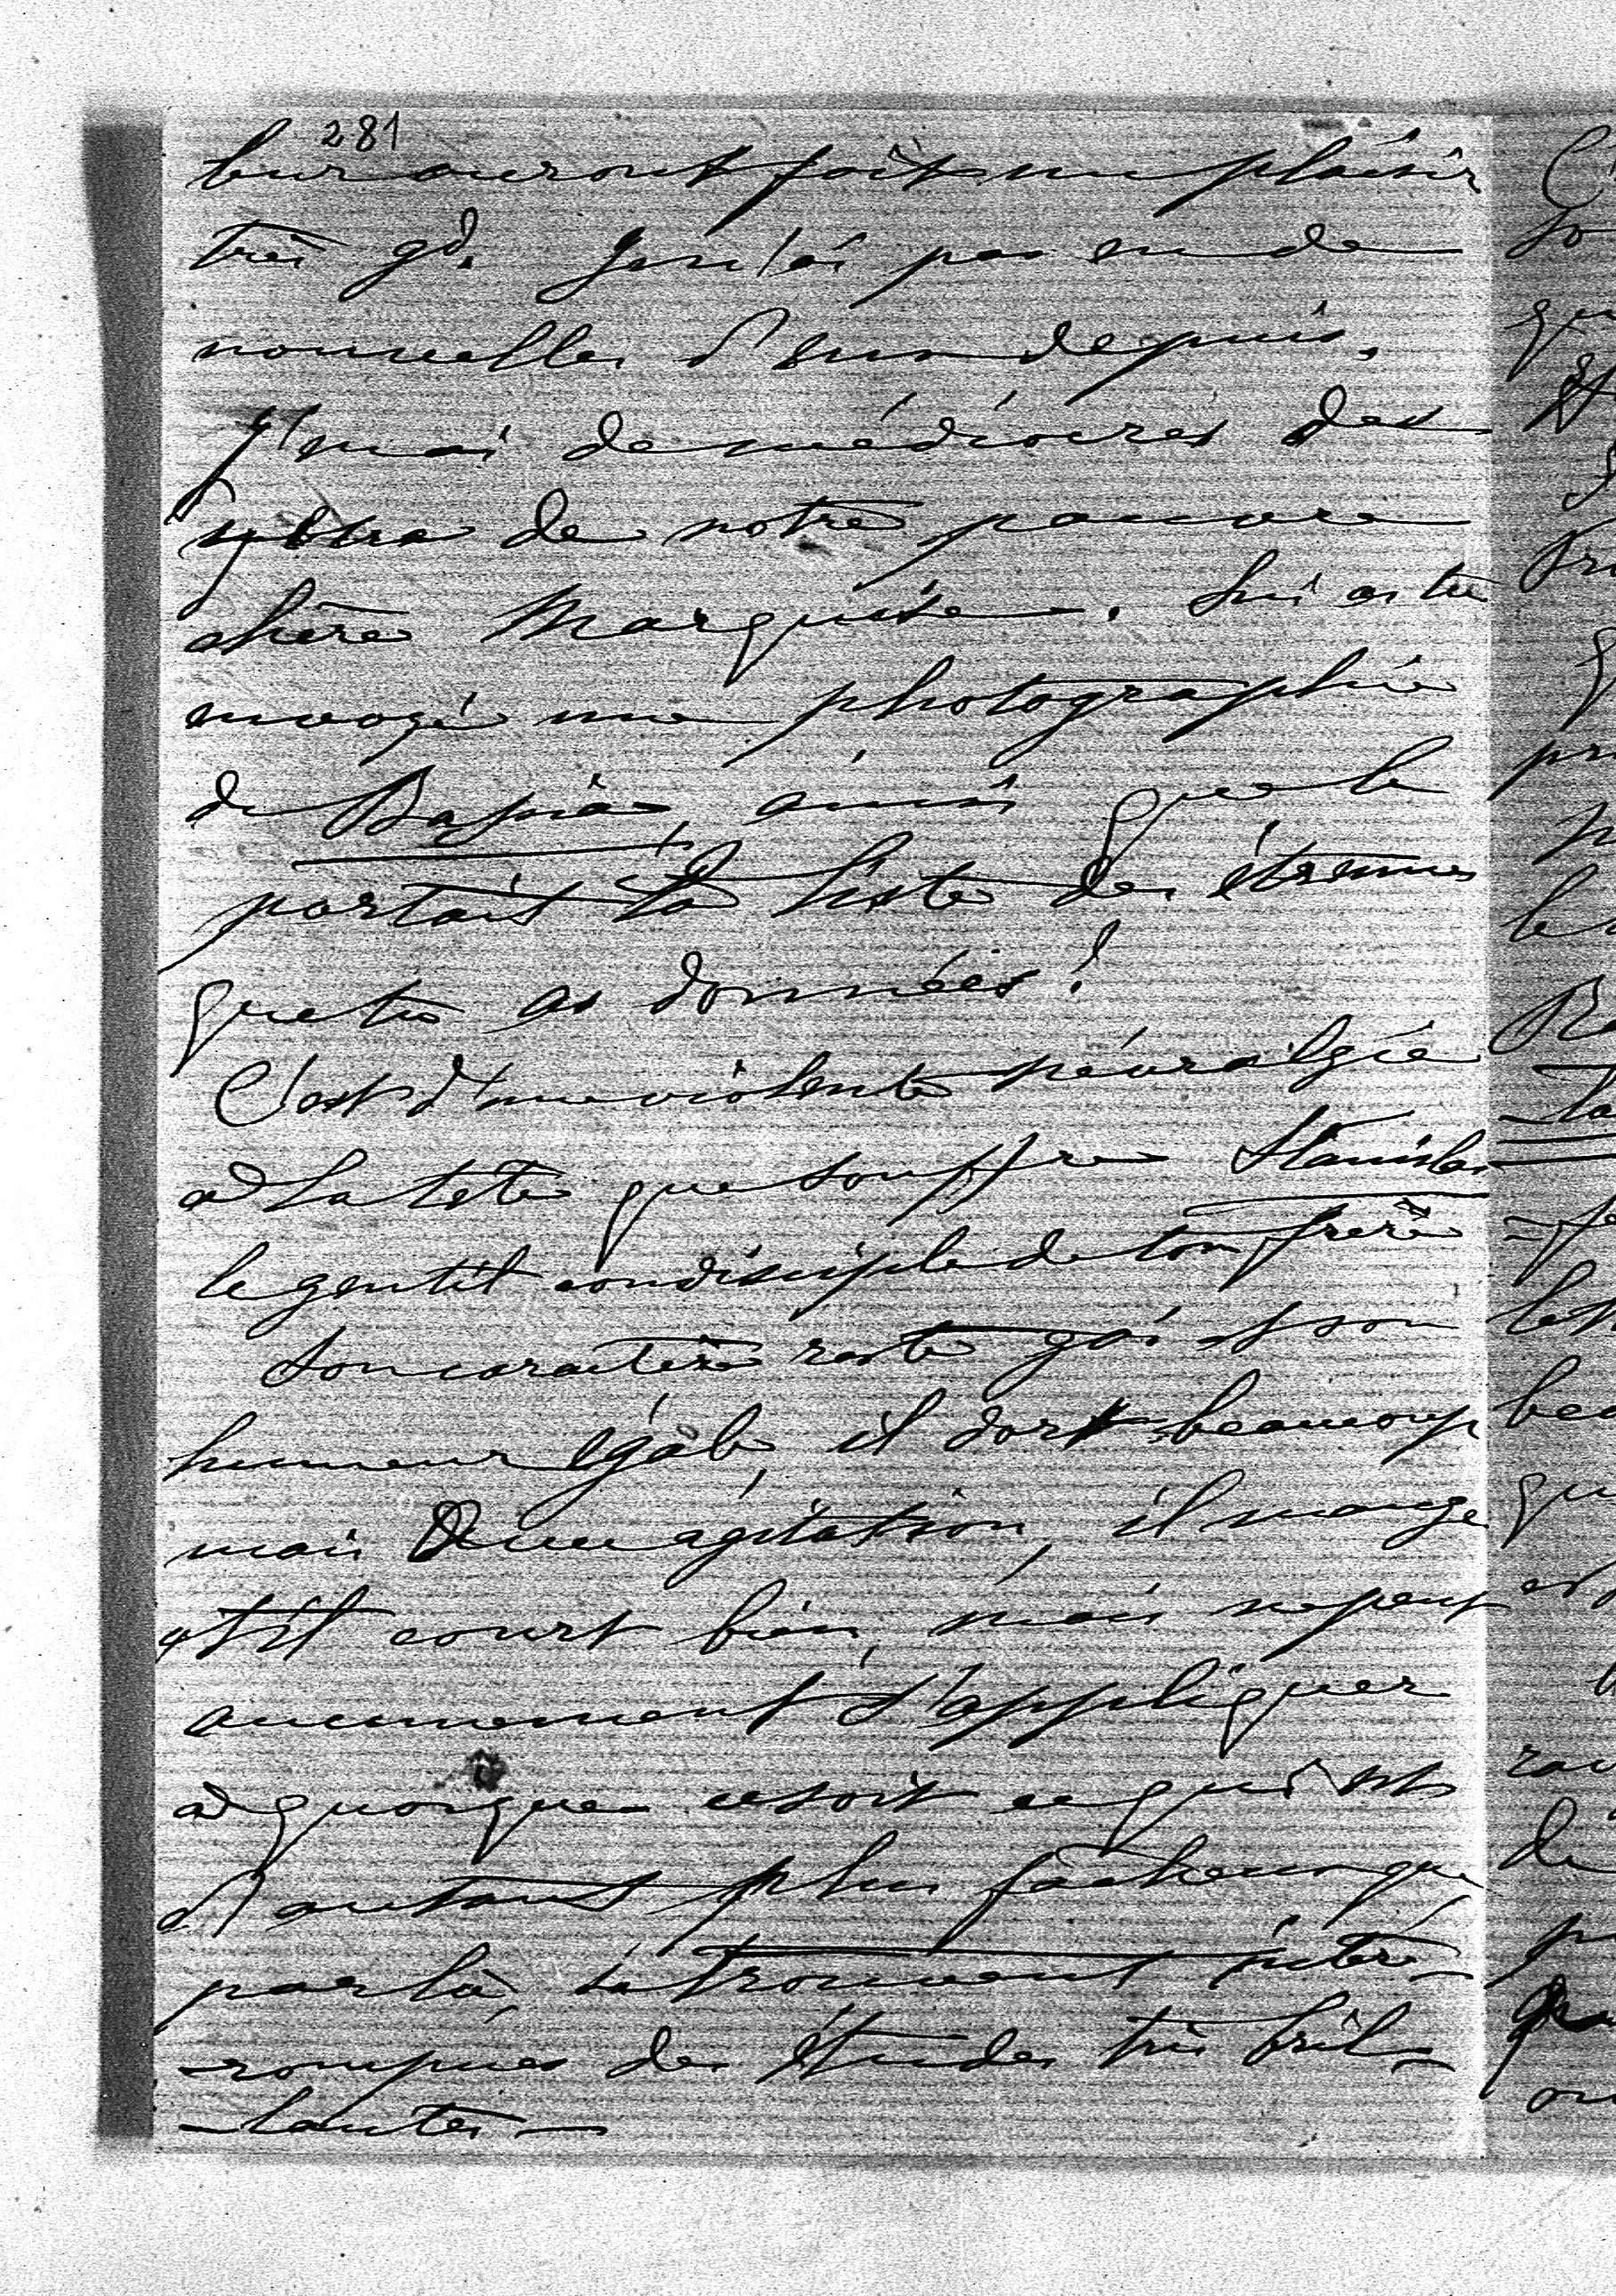 281
leur auront fait un plaisir
très gd. Je n'ai pas eu de
nouvelles d'eux depuis.
J'en ai de médiocres des
de notre pauvre
chère Marquise. Lui as tu
envoyé une photographie
de Baspia, ainsi que le
portait la liste des étrennes
que tu as données?
C'est d'une violente névralgie
à la tête que souffre Stanislas
le gentil condisciple de ton frère
Son caractère reste gai et son
humeur égale, il dort beaucoup
mais avec agitation, il mange
et il court bien, mais ne peut
aucunement s'appliquer
à quoique ce soit ce qui est
d'autant plus fâcheux que
par là, se trouvent inter-
-rompues des études très bril-
-lantes -